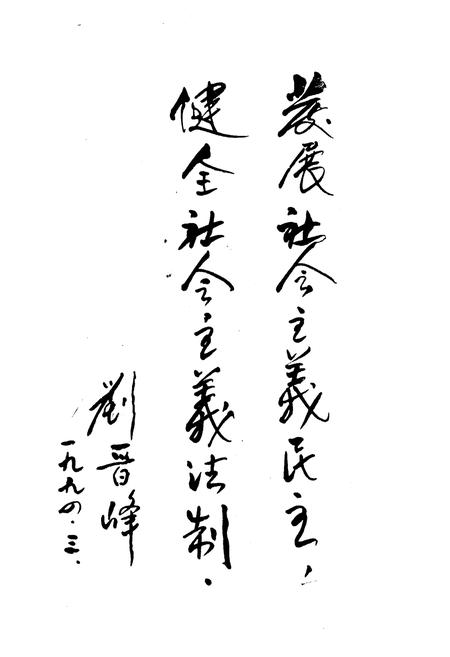 發展社会主義民主，
健全社会主義法制。
劉晋峰
一九九四.三.